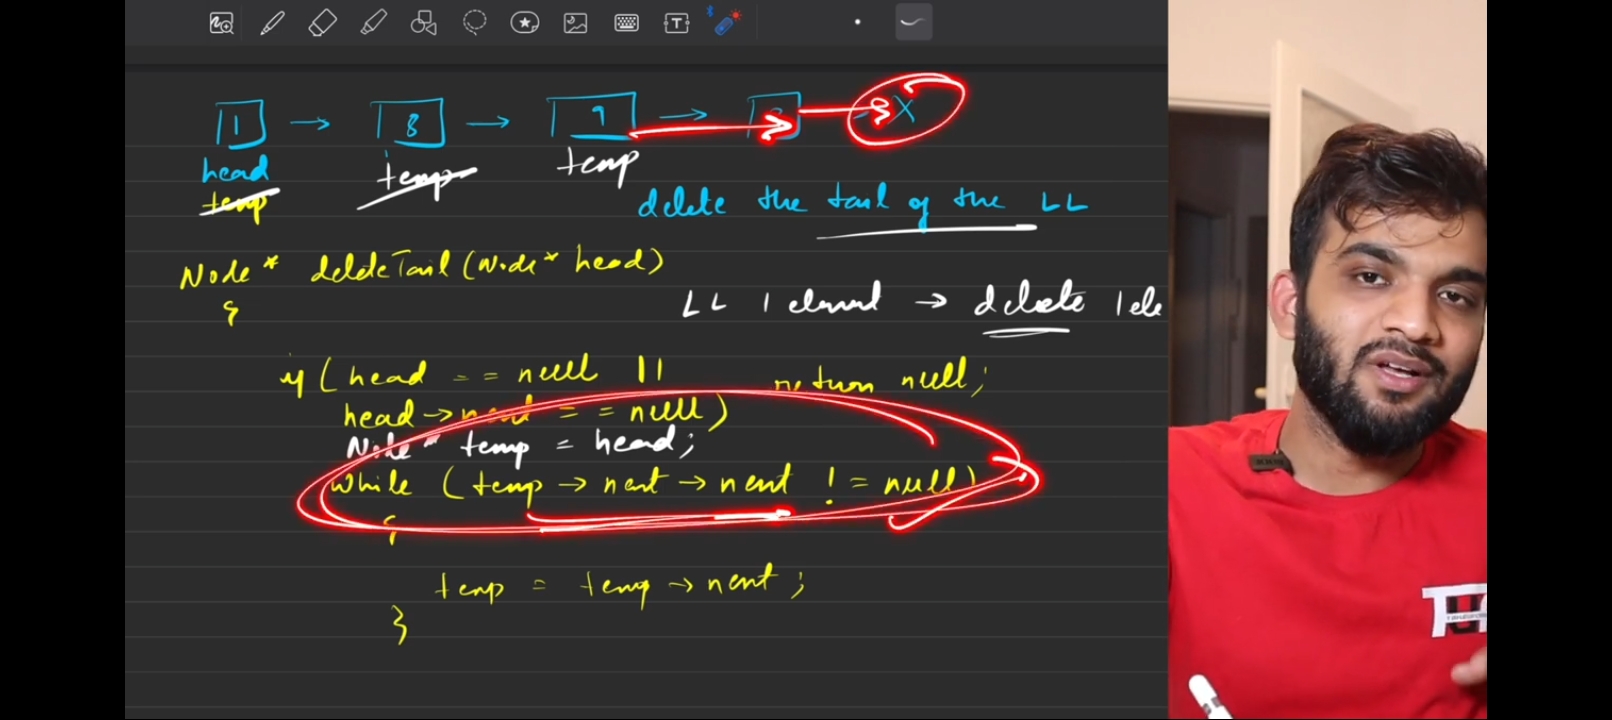 1 → 8 → 9 → X
head temp temp
temp
delete the tail of the LL
Node* deleteTail(Node* head)
{
LL 1 element → delete 1 ele
if (head == null || return null;
head→next == null)
Node* temp = head;
while (temp → next → next != null)
{
temp = temp → next;
}